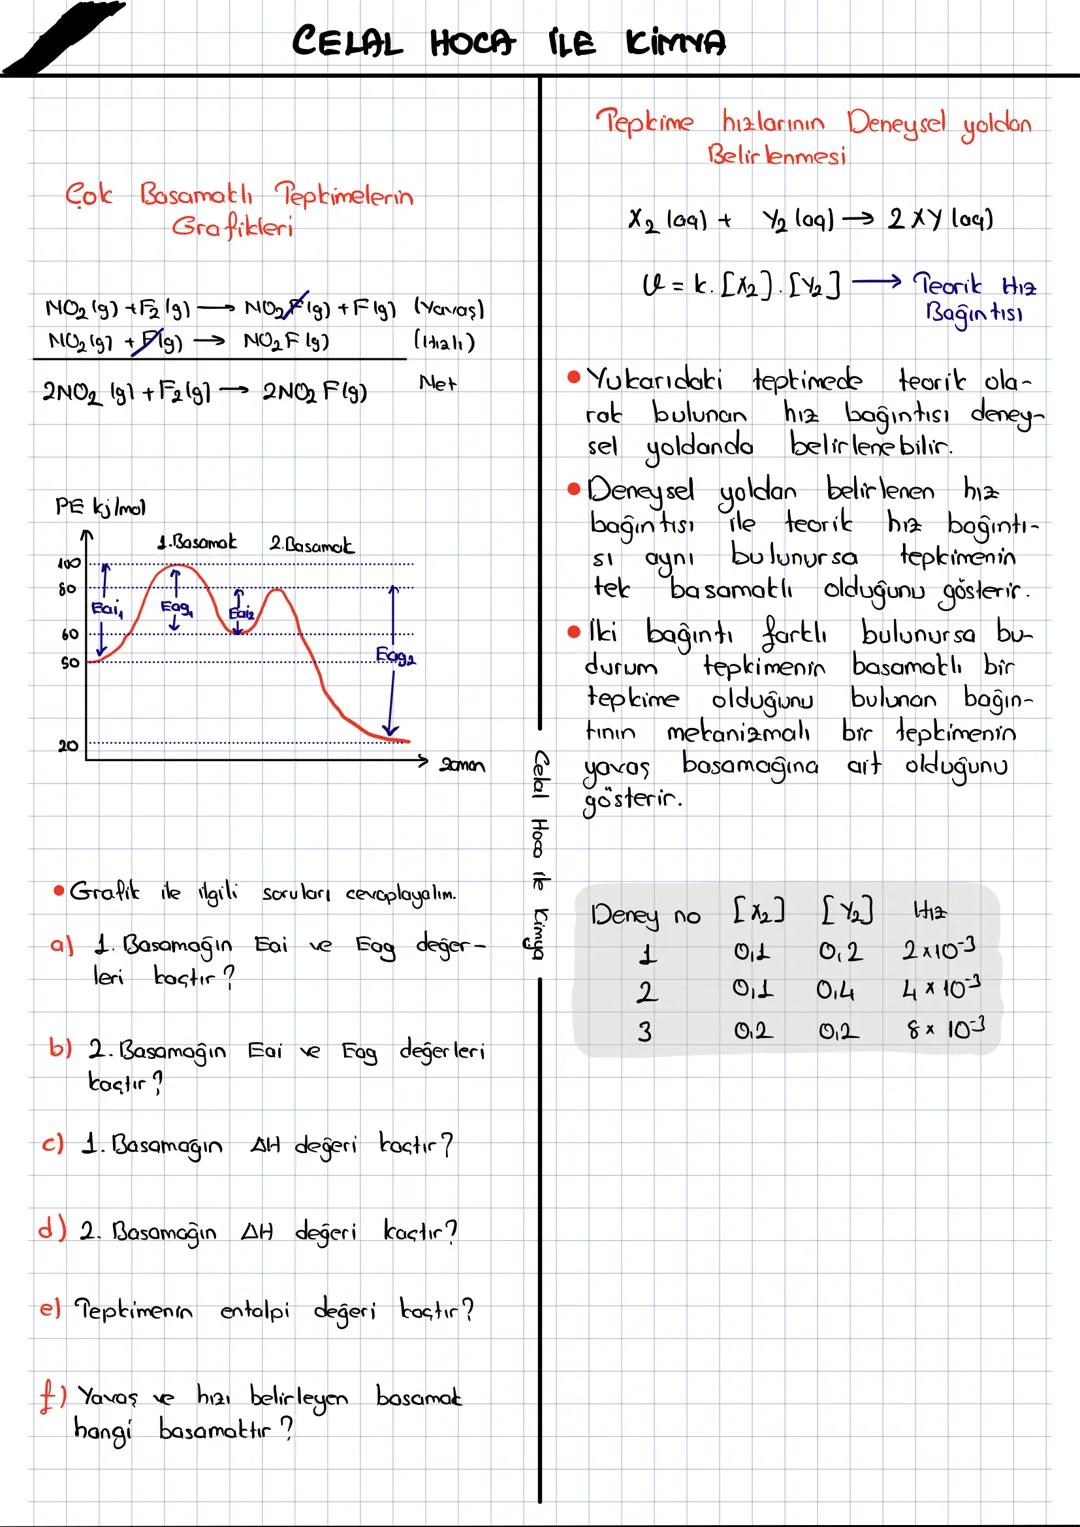 CELAL HOCA İLE KİMYA
Çok Basamaklı Tepkimelerin
Grafikleri
NO2 (g) + F2 (g) → NO2F (g) + F (g) (Yavaş)
NO2 (g) + F (g) → NO2F (g) (Hızlı)
2NO2 (g) + F2 (g) → 2NO2F (g) Net
PE kj/mol
1.Basamak 2.Basamak
100
80
Eai1 Eag1 Eai2
60
50 Eag2
20
zaman
• Grafik ile ilgili soruları cevaplayalım.
a) 1. Basamağın Eai ve Eag değer-
leri kaçtır?
b) 2. Basamağın Eai ve Eag değerleri
kaçtır?
c) 1. Basamağın ΔH değeri kaçtır?
d) 2. Basamağın ΔH değeri kaçtır?
e) Tepkimenin entalpi değeri kaçtır?
f) Yavaş ve hızı belirleyen basamak
hangi basamaktır?
Celal Hoca ile Kimya
Tepkime hızlarının Deneysel yoldan
Belirlenmesi
X2 (aq) + Y2 (aq) → 2XY (aq)
V = k.[X2].[Y2] → Teorik Hız
Bağıntısı
• Yukarıdaki tepkimede teorik ola-
rak bulunan hız bağıntısı deney-
sel yoldanda belirlenebilir.
• Deneysel yoldan belirlenen hız
bağıntısı ile teorik hız bağıntı-
sı aynı bulunursa tepkimenin
tek basamaklı olduğunu gösterir.
• İki bağıntı farklı bulunursa bu
durum tepkimenin basamaklı bir
tepkime olduğunu bulunan bağın-
tının mekanizmalı bir tepkimenin
yavaş basamağına ait olduğunu
gösterir.
Deney no [X2] [Y2] Hız
1 0,1 0,2 2x10-3
2 0,1 0,4 4x10-3
3 0,2 0,2 8x10-3